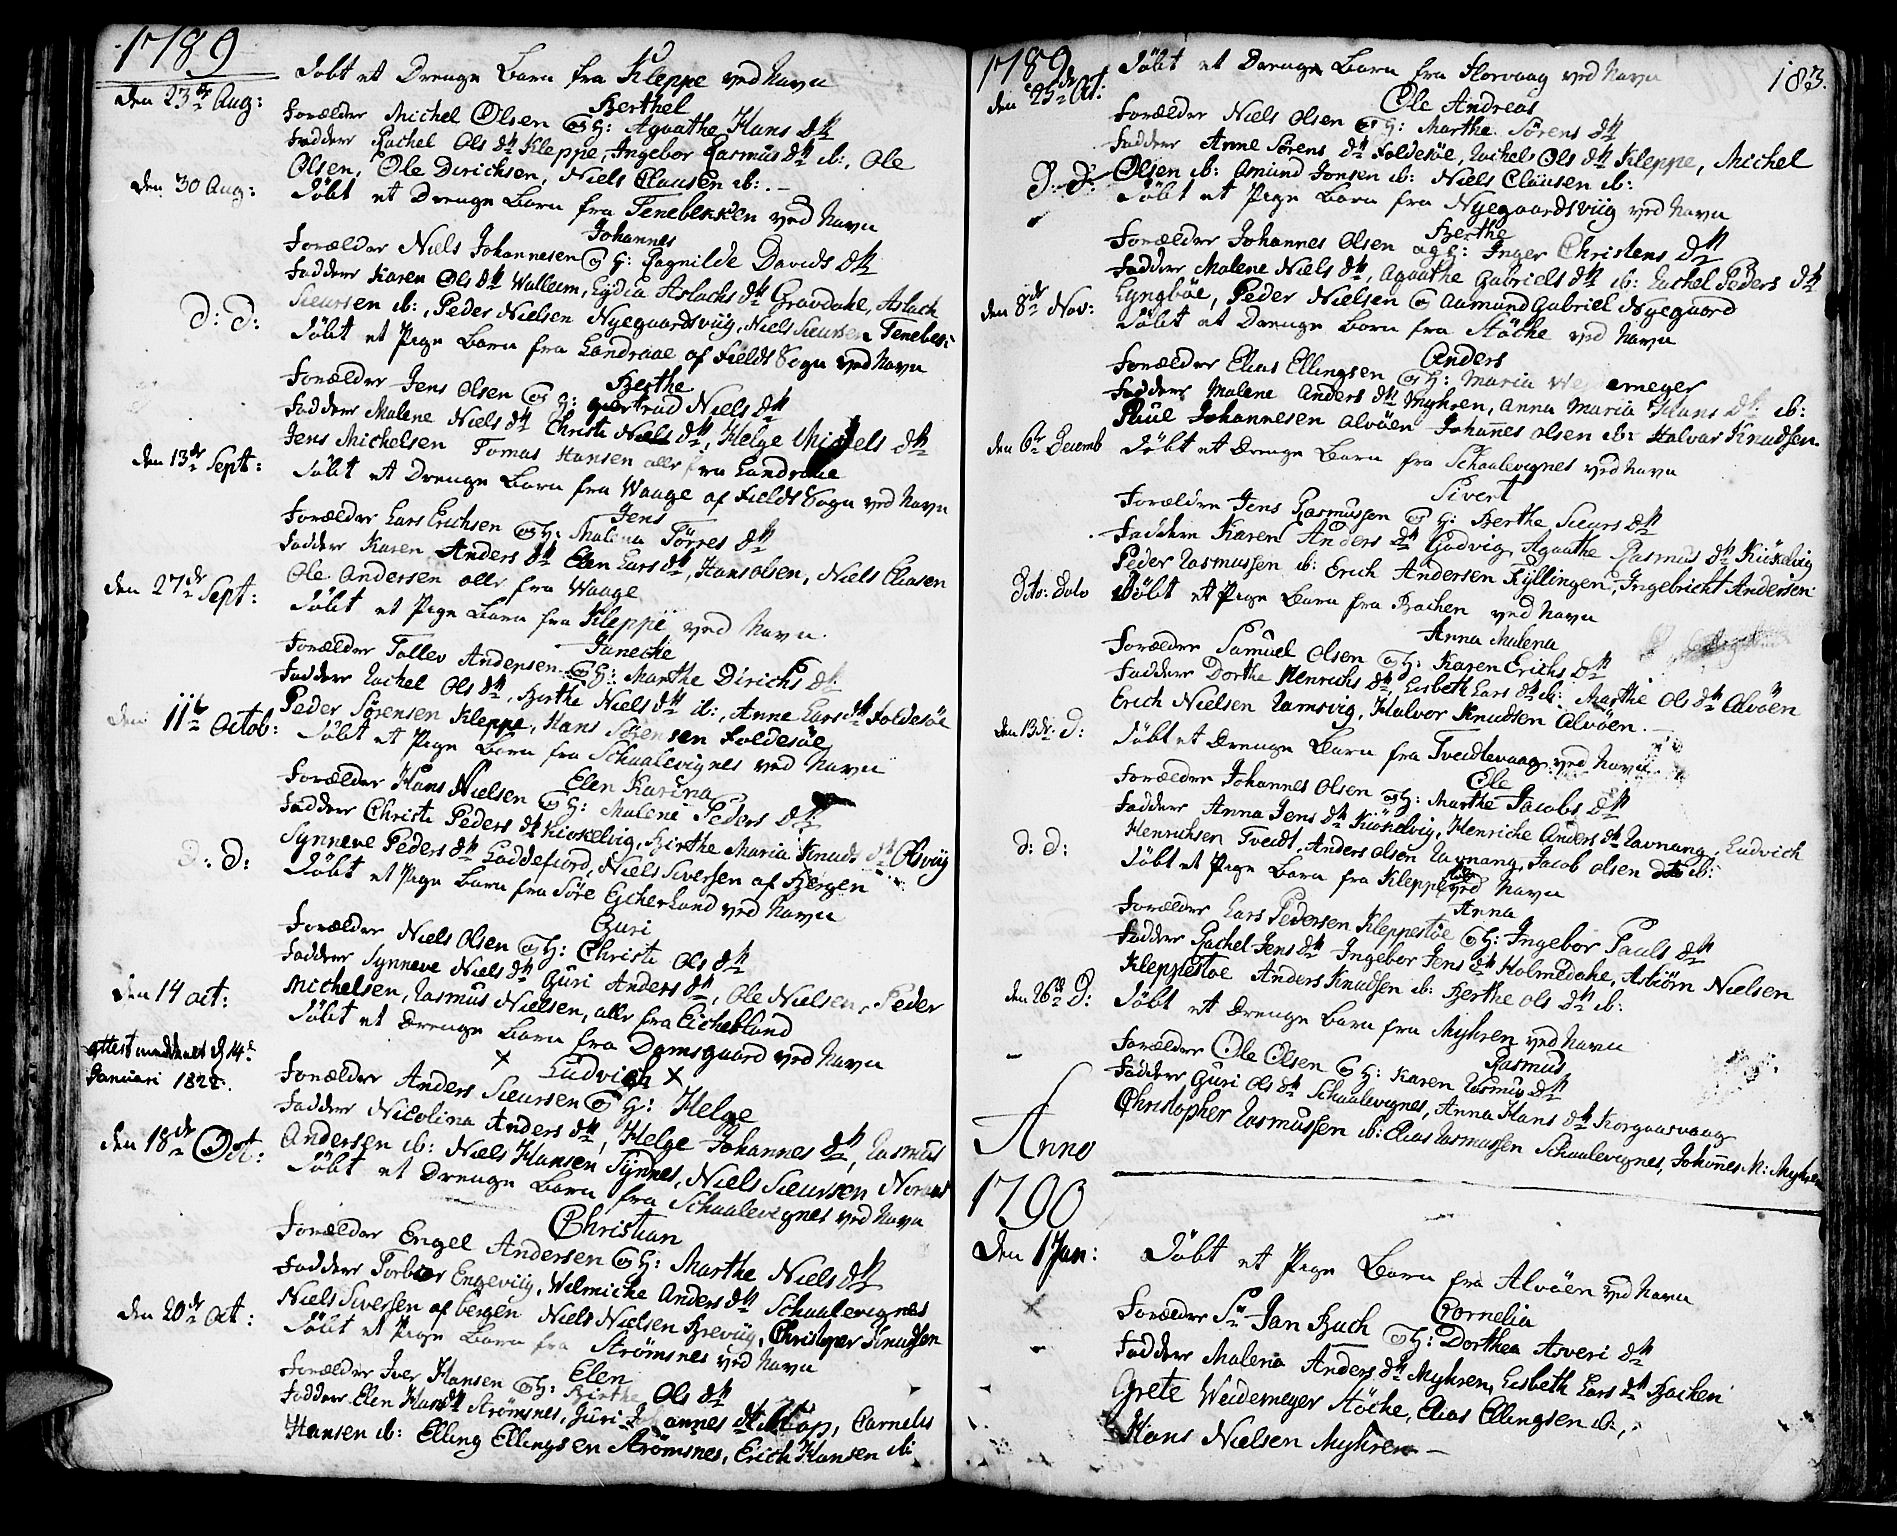 1789
den 23de Aug: Döbt et Drenge Barn fra Kleppe ved Navn
Berthel
Forælder Michel Olsen og H: Agaathe Hans dtt
Faddere Rachel Ols dtt Kleppe, Ingebor Rasmus dtt ib:, Ole
Olsen, Ole Dirichsen, Niels Clausen ib:.
den 30 Aug: Döbt et Drenge Barn fra Tenebekken ved Navn
Johannes
Forælder Niels Johannesen og H: Ragnilde Davids dtt
Faddere Karen Ols dtt Walleim, Lydia Aslachs dtt Gravdahl, Aslach
Sieursen ib:, Peder Nielsen Nyegaardsviig, Niels Sieursen Tenebek:
D: D: Döbt et Pige Barn fra Landraae af Fields Sogn ved Navn
Berthe
Forælder Jens Olsen og H: giertrud Niels dtt
Faddere Malene Niels dtt Christi Niels dtt, Helge Michels dtt
Jens Michelsen Tomas Hansen alle fra Landraae
den 13de Sept: Döbt et Drenge Barn fra Waage af Fields Sogn ved Navn
Jens
Forælder Lars Erichsen og H: Malina Törres dtt
Faddere Karen Anders dtt Elen Lars dtt, Hans Olsen, Niels Eliasen
Ole Andersen alle fra Waage
den 27de Sept: Döbt et Pige Barn fra Kleppe ved Navn
Janeche
Forælder Tollev Andersen og H: Marthe Dirichs dtt
Faddere Rachel Ols dtt, Berthe Niels dtt ib:, Anne Lars dtt Foldesöe
Peder Sörensen Kleppe, Hans Sörensen Foldesöe
den 11te Octob: Döbt et Pige Barn fra Schaalevignes ved Navn
Elen Karina
Forælder Hans Nielsen og H: Malene Peders dtt
Faddere Christi Peders dtt Kiökelvig, Birthe Maria Knuds dtt Olsviig
Synneve Peders dtt Loddefiord, Niels Siversen af Bergen
D: D: Döbt et Pige Barn fra Söre Eicherland ved Navn
Guri
Forælder Niels Olsen og H: Christi Ols dtt
Faddere Synneve Niels dtt Guri Anders dtt, Ole Nielsen, Peder
Michelsen, Rasmus Nielsen, alle fra Eicherland
den 14 oct: Döbt et Drenge Barn fra Damsgaard ved Navn
Attest meddeelt d 14e
Januari 1822.
× Ludvich ×
Forælder Anders Sieursen og H: Helge
Faddere Nicolina Anders dtt, Helge Johannes dtt, Rasmus
Andersen ib: Niels Hansen Synnes, Niels Sieursen
den 18de Oct: Döbt et Drenge Barn fra Schaalevignes ved Navn
Christian
Forælder Engel Andersen og H: Marthe Niels dtt
Faddere Torbiör Engeviig, Welmiche Anders dtt Schaalevignes
Niels Siversen af bergen Niels Nielsen Breviig, Christoper Knudsen
den 20de oct: Döbt et Pige Barn fra Strömsnes ved Navn
Elen
Forælder Iver Hansen og H: Birthe Ols dtt
Faddere Elen Hans dtt Strömsnes, Guri Johannes dtt, Cornelis
Hansen ib: Elling Ellingsen Strömsnes, Erich Hansen ib:
1789. 183.
den 25de Oct: Döbt et Drenge Barn fra Horvaag ved Navn
Ole Andreas
Forælder Niels Olsen og H: Marthe Sörens dtt
Faddere Anne Sörens dtt Foldesöe, Rachel Ols dtt Kleppe, Michel
Olsen ib: Amund Jonsen ib: Niels Clausen ib:
D: D: Döbt et Pige Barn fra Nyegaardsviig ved Navn
Berthe
Forælder Johannes Olsen og H: Inger Christens dtt
Faddere Malene Niels dtt, Agaathe Gabriels dtt ib: Rachel Peders dtt
Lyngböe, Peder Nielsen og Aamund Gabriel Nyegaard
den 8de Nov: Döbt et Drenge Barn fra Höche ved Navn
Anders
Forælder Elias Ellingsen og H: Maria
Faddere Malene Anders dtt Myhren, Anna Maria Hans dtt ib:
Paul Johannesen Alvöen Johannes olsen ib: Halvor Knudsen
den 6te Decemb Döbt et Drenge Barn fra Schaalevignes ved Navn
Sivert
Forældre Jens Rasmussen og H: Berthe Sieurs dtt
Faddere Karen Anders dtt Godvig, Agaathe Rasmus dtt Kiökelvig
Peder Rasmussen ib: Erich Andersen Fyllingen, Ingebricht Andersen
Dito: Dato Döbt et Pige Barn fra Bachen ved Navn
Anna Malena
Forælder Samuel Olsen og H: Karen Erichs dtt
Faddere Dorthe Henrichs dtt, Lisbeth Lars dtt ib: Marthe Ols dtt Alvöen
Erich Nielsen Ramsvig, Halvor Knudsen Alvöen.
den 13de D: Döbt et Drenge Barn fra Tvedtevaag ved Navn
Ole
Forælder Johannes Olsen og H: Marthe Jacobs dtt
Faddere Anna Jens dtt Kiökelvig, Henriche Anders dtt Ravnang, Ludvich
Henrichsen Tvedt, Anders Olsen Ravnang, Jacob Olsen ib:
d: d: Döbt et Pige Barn fra Kleppestöe ved Navn
Anna
Forælder Lars Pedersen Kleppestöe og H: Ingebor Pauls dtt
Faddere Rachel Jens dtt Ingebor Jens dtt Holmedahl, Asbiörn Nielsen
Kleppestöe Anders Knudsen ib: Berthe Ols dtt ib:
den 26de D: Döbt et Drenge Barn fra Myhren ved Navn
Rasmus
Forælder Ole Olsen og H: Karen Rasmus dtt
Faddere Guri Ols dtt Schaalevignes, Anna Hans dtt Korgaasvaag
Christopher Rasmussen ib: Elias Rasmussen Schaalevignes, Johannes M: Myhren
Anno
1790
den 1 Jan: Döbt et Pige Barn fra Alvöen ved Navn
Cornelia
Forælder Sr Jan Bach og H: Dorthea Asveri dtt
Faddere Malena Anders dtt Myhren, Lisbeth Lars dtt Bachen
Grete Weidemeyer Höche, Elias Ellingsen ib:,
Hans Nielsen Myhren